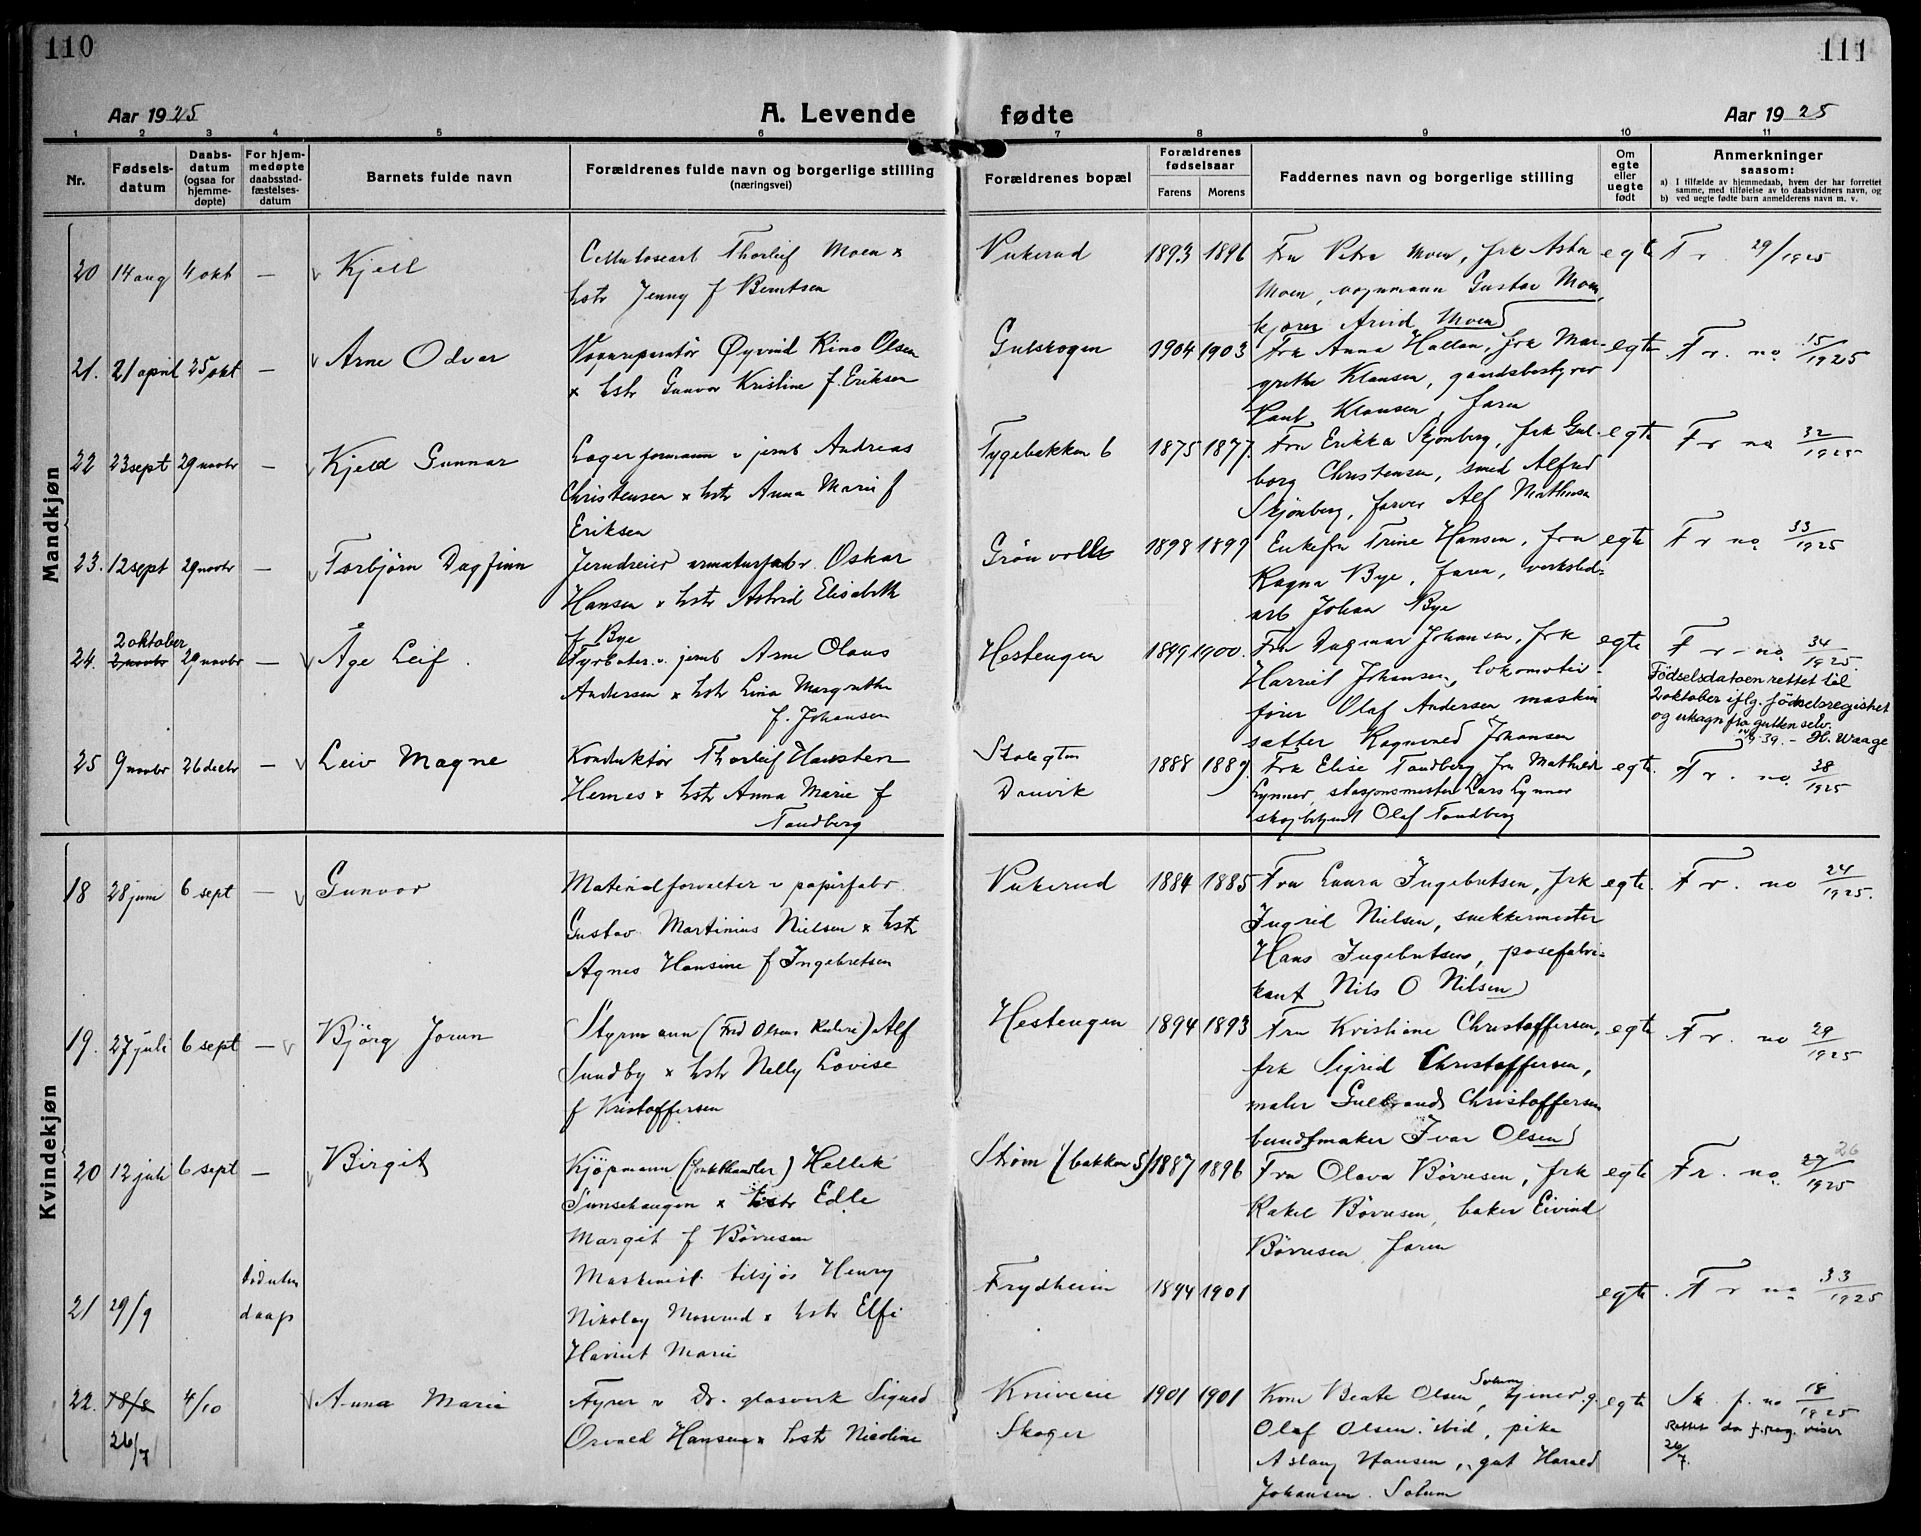 110
111
Aar 1925
A. Levende
fødte
Aar 1925
1 2 3 4 5 6 7 8 9 10 11
Nr.
Fødsels-
datum
Daabs-
datum
(ogsaa for
hjemme-
døpte)
For hjem-
medøpte
daabsstad-
fæstelses-
datum
Barnets fulde navn
Forældrenes fulde navn og borgerlige stilling
(næringsvei)
Forældrenes bopæl
Forældrenes
fødselsaar
Farens Morens
Faddernes navn og borgerlige stilling
Om
egte
eller
uegte
født
Anmerkninger
saasom:
a) I tilfælde av hjemmedaab, hvem der har forrettet
samme, med tilføielse av to daabsvidners navn, og
b) ved uegte fødte barn anmelderens navn m. v.
Mandkjøn
20 14 aug 4 okt — Kjell
Cellulosearb Thorleif Moen x
hstr Jenny f Berntsen
Vukerud 1893 1896
Fru Petra Moen, frk Asta
Moen, vognmann Gustav Moen,
kjører Arvid Moen
egte Fr. 29/1925
21. 21 april 25 okt — Arne Odvar
Vognreparatør Øyvind Rino Olsen
x hstr Gunvor Kristine f. Eriksen
Gulskogen 1904 1903
Frk Anna Hallan, frk Mar-
grethe Klausen, gaardsbestyrer
Paul Klausen, faren
egte Fr. no 15/1925
22 23 sept 29 novbr — Kjeld Gunnar
Lagerformann v jernb Andreas
Christensen x hstr Anna Marie f
Eriksen
Tygebakken 6 1875 1877.
Fru Erikka Skjønberg, frk Gul-
borg Christensen, smed Alfred
Skjønberg, farver Alf Mathisen
egte Fr no 32/1925
23. 12 sept 29 novbr — Torbjørn Dagfinn
Jerndreier armaturfabr. Oskar
Hansen x hstr Astrid Elisabeth
f Bye
Grønvold 1898 1899
Enkefru Trine Hansen, fru
Ragna Bye, faren, verksted-
arb Johan Bye
egte Fr no 33/1925
24. 2 oktober
2 novbr 29 novbr — Åge Leif.
Fyrbøter v. jernb Arne Olaus
Andersen x hstr Lina Margrethe
f. Johansen
Hestengen 1899 1900.
Fru Dagmar Johansen, frk
Harriet Johansen, lokomotiv-
fører Olaf Andersen maskin
sætter Ragnvald Johansen
egte Fr. no 34/1925.
Fødselsdatoen rettet til
2 oktober iflg. fødselsregistret
og utsagn fra gutten selv.
39. - H. Waage
25 9 novbr 26 decbr — Leiv Magne
Konduktør Thorleif Hansten
Hernes x hstr Anna Marie f
Tandberg
Skolegtn
Danvik 1888 1889.
Frk Elise Tandberg fru Mathilde
Lynner, stasjonsmester Lars Lynner
skogbetjent Olaf Tandberg
egte. Fr. no 38/1925
Kvindekjøn
18 28 juni 6 sept — Gunvor
Materialforvalter v papirfabr.
Gustav Martinius Nielsen x hstr
Agnes Hansine f Ingebretsen
Vukerud 1884 1885
Fru Laura Ingebretsen, frk
Ingrid Nielsen, snekkermester
Hans Ingebretsen, posefabri-
kant Nils O Nilsen
egte. Fr. no 24/1925.
19. 27 juli 6 sept — Bjørg Jorun
Styrmann (Fred Olsens Rederi) Alf
Sundby x hstr Nelly Lovise
f Kristoffersen
Hestengen 1894 1893
Fru Kristiane Christoffersen,
frk Sigrid Christoffersen,
maler Gulbrand Christoffersen
buntmaker Ivar Olsen
egte Fr. no 29/1925
20 12 juli 6 sept — Birgit
Kjøpmann Hellik
x hstr Edle
Margit f Børresen
Strøm (bakken 5) 1887 1896
Fru Olava Børresen, frk
Rakel Børresen, baker Eivind
Børresen, faren
egte Fr. no 27/1925 26
21 29/9 død uten
daap
Maskinist tilsjøs Henry
Nikolay Moserud x hstr Elfi
Harriet Marie
Frydheim 1894 1901
egte. Fr no 33/1925
22. 18/8 4/10 Anna Marie
26/7
Fyrer v Dr. glasverk Sigurd
Osvald Hansen x hstr Nicoline
Kniveie
Skoger 1901 1901
Kone Beate Olsen Solum,
Olaf Olsen ibid, pike
Aslaug Hansen, gut Harald
Johansen. Solum
egte Sk. f. no 18/1925
Rettet da f.reg. viser
26/7.